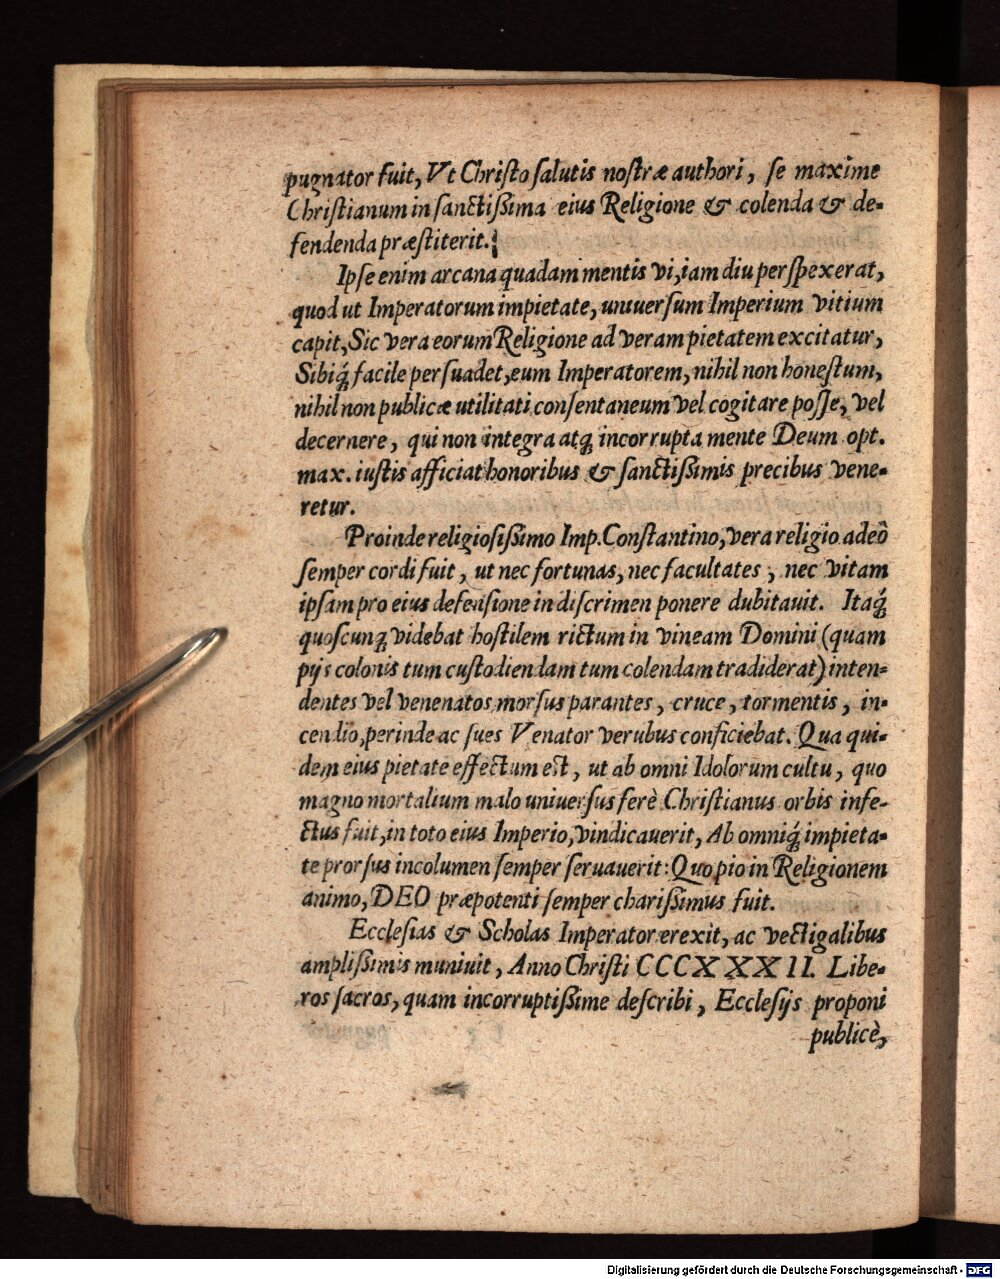 pugnator fuit, Vt Christo salutis nostræ authori, se maxime
Christianum in sanctißima eius Religione & colenda & de-
fendenda præstiterit.
Ipse enim arcana quadam mentis vi, iam diu perspexerat,
quod ut Imperatorum impietate, uniuersum Imperium vitium
capit, Sic vera eorum Religione ad veram pietatem excitatur,
Sibiq́; facile persuadet, eum Imperatorem, nihil non honestum,
nihil non publicæ utilitati consentaneum vel cogitare posse, vel
decernere, qui non integra atq; incorrupta mente Deum opt.
max. iustis afficiat honoribus & sanctißimis precibus vene-
retur.
Proinde religiosißimo Imp. Constantino, vera religio adeò
semper cordi fuit, ut nec fortunas, nec facultates, nec vitam
ipsam pro eius defensione in discrimen ponere dubitauit. Itaq́;
quoscunq; videbat hostilem rictum in vineam Domini (quam
pijs colonis tum custodiendam tum colendam tradiderat) inten-
dentes vel venenatos morsus parantes, cruce, tormentis, in-
cendio, perinde ac sues Venator verubus conficiebat. Qua qui-
dem eius pietate effectum est, ut ab omni Idolorum cultu, quo
magno mortalium malo uniuersus ferè Christianus orbis infe-
ctus fuit, in toto eius Imperio, vindicauerit, Ab omniq́; impieta-
te prorsus incolumen semper seruauerit: Quo pio in Religionem
animo, DEO præpotenti semper charißimus fuit.
Ecclesias & Scholas Imperator erexit, ac vectigalibus
amplißimis muniuit, Anno Christi CCCXXXII. Libe-
ros sacros, quam incorruptißime describi, Ecclesijs proponi
publicè,
Digitalisierung gefördert durch die Deutsche Forschungsgemeinschaft - DFG